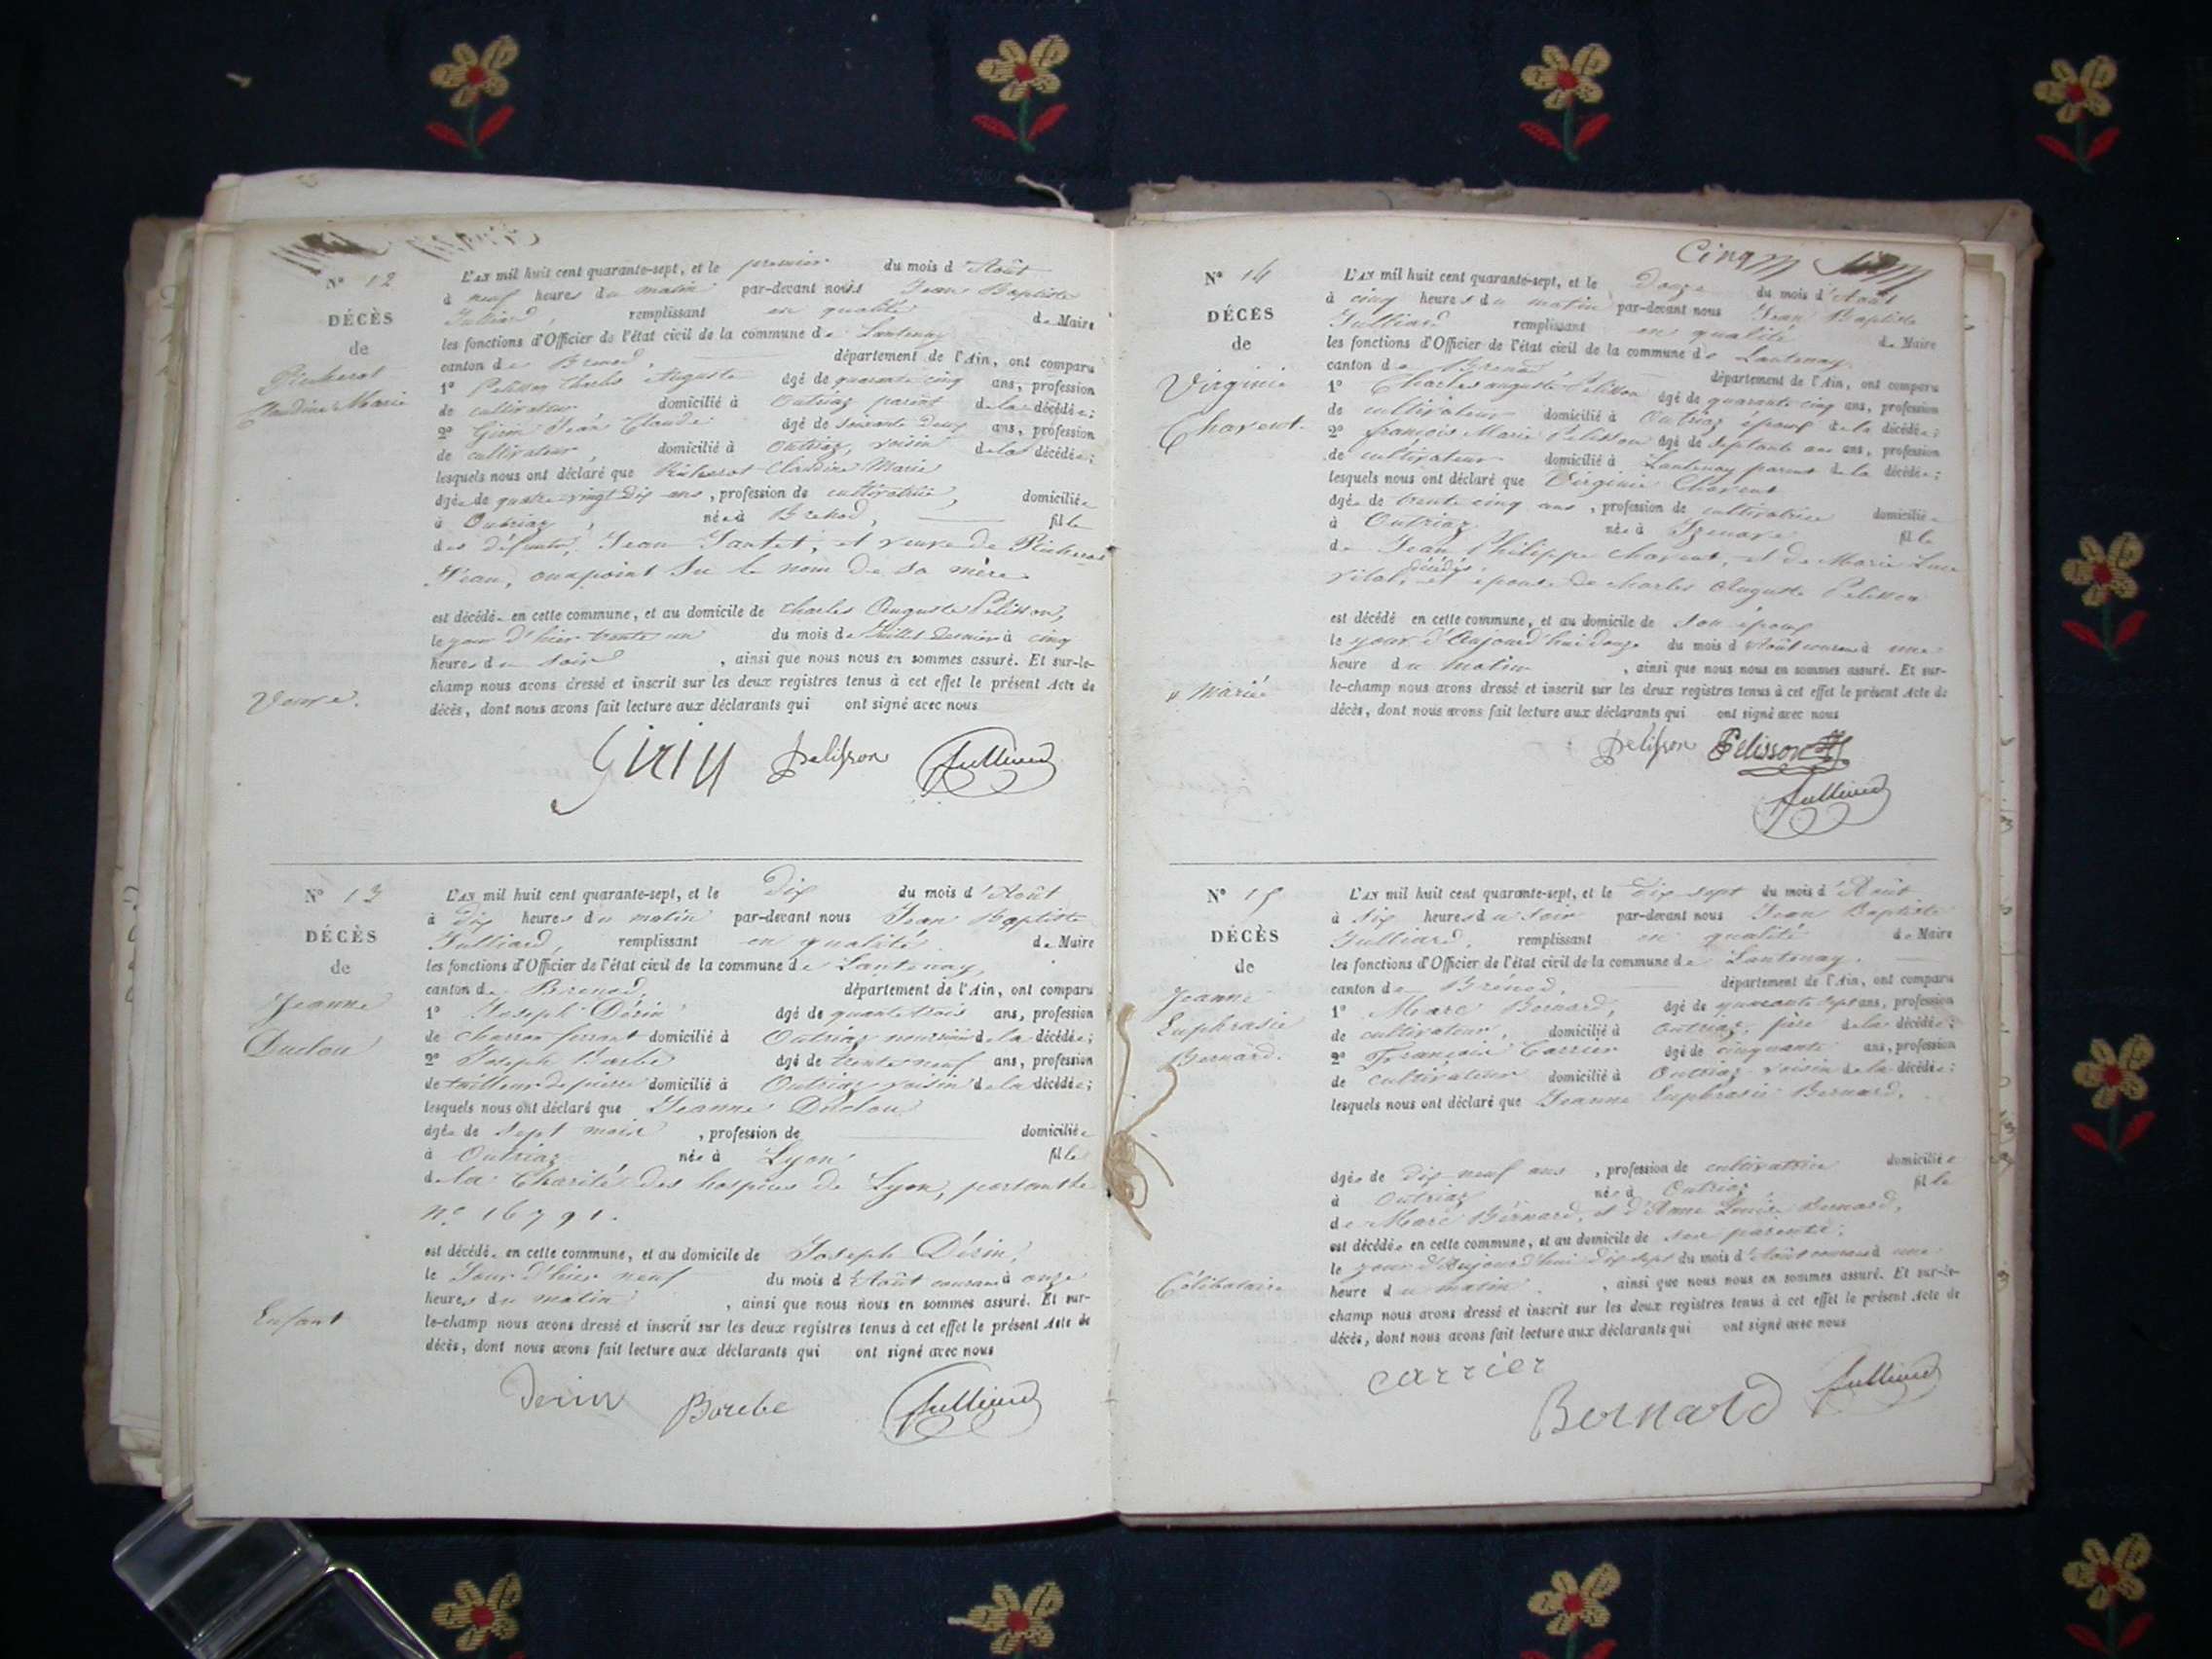 N° 12
DÉCÈS
de
Claudine Marie
Veuve.
L'AN mil huit cent quarante-sept, et le premier du mois d'Août
à neuf heures du matin par-devant nous Jean Baptiste
Julliard, remplissant en qualité de Maire
les fonctions d'Officier de l'état civil de la commune de Lantenay
canton de Brenod, département de l'Ain, ont comparu
1° Pelisson Charles Auguste âgé de quarante cinq ans, profession
de cultivateur domicilié à Outriaz parent de la décédée;
2° Girin Jean Claude âgé de soixante deux ans, profession
de cultivateur, domicilié à Outriaz, voisin de la décédée;
lesquels nous ont déclaré que Claudine Marie
âgée de quatre-vingt dix ans, profession de cultivatrice, domiciliée
à Outriaz, née à Brenod, fille
des défunts, Jean et veuve de
Jean, on a point su le nom de sa mère
est décédée en cette commune, et au domicile de Charles Auguste Pelisson,
le jour d'hier trente un du mois de Juillet dernier à cinq
heures du soir, ainsi que nous nous en sommes assuré. Et sur-le-
champ nous avons dressé et inscrit sur les deux registres tenus à cet effet le présent Acte de
décès, dont nous avons fait lecture aux déclarants qui ont signé avec nous
Girin pelisson Julliard
N° 13
DÉCÈS
de
Jeanne
Duclou
Enfant
L'AN mil huit cent quarante-sept, et le dix du mois d'Août
à dix heures du matin par-devant nous Jean Baptiste
Julliard, remplissant en qualité de Maire
les fonctions d'Officier de l'état civil de la commune de Lantenay,
canton de Brenod département de l'Ain, ont comparu
1° Joseph Dérin âgé de quarante trois ans, profession
de charron ferrant domicilié à Outriaz de la décédée;
2° Joseph Barbe âgé de trente neuf ans, profession
de tailleur de pierre domicilié à Outriaz voisin de la décédée;
lesquels nous ont déclaré que Jeanne Duclou
âgée de sept mois, profession de domiciliée
à Outriaz née à Lyon fille
de la Charité des hospices de Lyon, portant le
n° 16791.
est décédée en cette commune, et au domicile de Joseph Dérin,
le Jour d'hier neuf du mois d'Août courant à onze
heures du matin, ainsi que nous nous en sommes assuré. Et sur-
le-champ nous avons dressé et inscrit sur les deux registres tenus à cet effet le présent Acte de
décès, dont nous avons fait lecture aux déclarants qui ont signé avec nous
Derin Barbe Julliard
N° 14
DÉCÈS
de
Virginie
Charent.
Mariée
L'AN mil huit cent quarante-sept, et le Douze du mois d'Août
à cinq heures du matin par-devant nous Jean Baptiste
Julliard remplissant en qualité de Maire
les fonctions d'Officier de l'état civil de la commune de Lantenay
canton de Brenod, département de l'Ain, ont comparu
1° Charles auguste Pelisson âgé de quarante cinq ans, profession
de cultivateur domicilié à Outriaz époux de la décédée;
2° françois Marie Pelisson âgé de septante ans ans, profession
de cultivateur domicilié à Lantenay parent de la décédée;
lesquels nous ont déclaré que Virginie Charent
âgée de trente cinq ans, profession de cultivatrice domiciliée
à Outriaz née à Izenave fille
de Jean Philippe Charent, et de Marie Luce
Vital, décédés et épouse de Charles Auguste Pelisson
est décédé en cette commune, et au domicile de son époux
le jour d'Aujourd'hui douze du mois d'Août courant à une
heure du matin, ainsi que nous nous en sommes assuré. Et sur-
le-champ nous avons dressé et inscrit sur les deux registres tenus à cet effet le présent Acte de
décès, dont nous avons fait lecture aux déclarants qui ont signé avec nous
pelisson Pelisson
Julliard
N° 15
DÉCÈS
de
Jeanne
Euphrasie
Bernard.
Célibataire
L'AN mil huit cent quarante-sept, et le dix sept du mois d'Août
à six heures du soir par-devant nous Jean Baptiste
Julliard, remplissant en qualité de Maire
les fonctions d'Officier de l'état civil de la commune de Lantenay.
canton de Brenod, département de l'Ain, ont comparu
1° Marc Bernard, âgé de quarante sept ans, profession
de cultivateur, domicilié à Outriaz, père de la décédée;
2° François Carrier âgé de cinquante ans, profession
de cultivateur domicilié à Outriaz voisin de la décédée;
lesquels nous ont déclaré que Jeanne Euphrasie Bernard,
âgée de dix neuf ans, profession de cultivatrice domiciliée
à Outriaz née à Outriaz, fille
de Marc Bernard, et d'Anne Louise Bernard,
est décédée en cette commune, et au domicile de ses parents,
le jour d'Aujourd'hui dix sept du mois d'Août courant à une
heure du matin, ainsi que nous nous en sommes assuré. Et sur-le-
champ nous avons dressé et inscrit sur les deux registres tenus à cet effet le présent Acte de
décès, dont nous avons fait lecture aux déclarants qui ont signé avec nous
carrier
Bernard Julliard